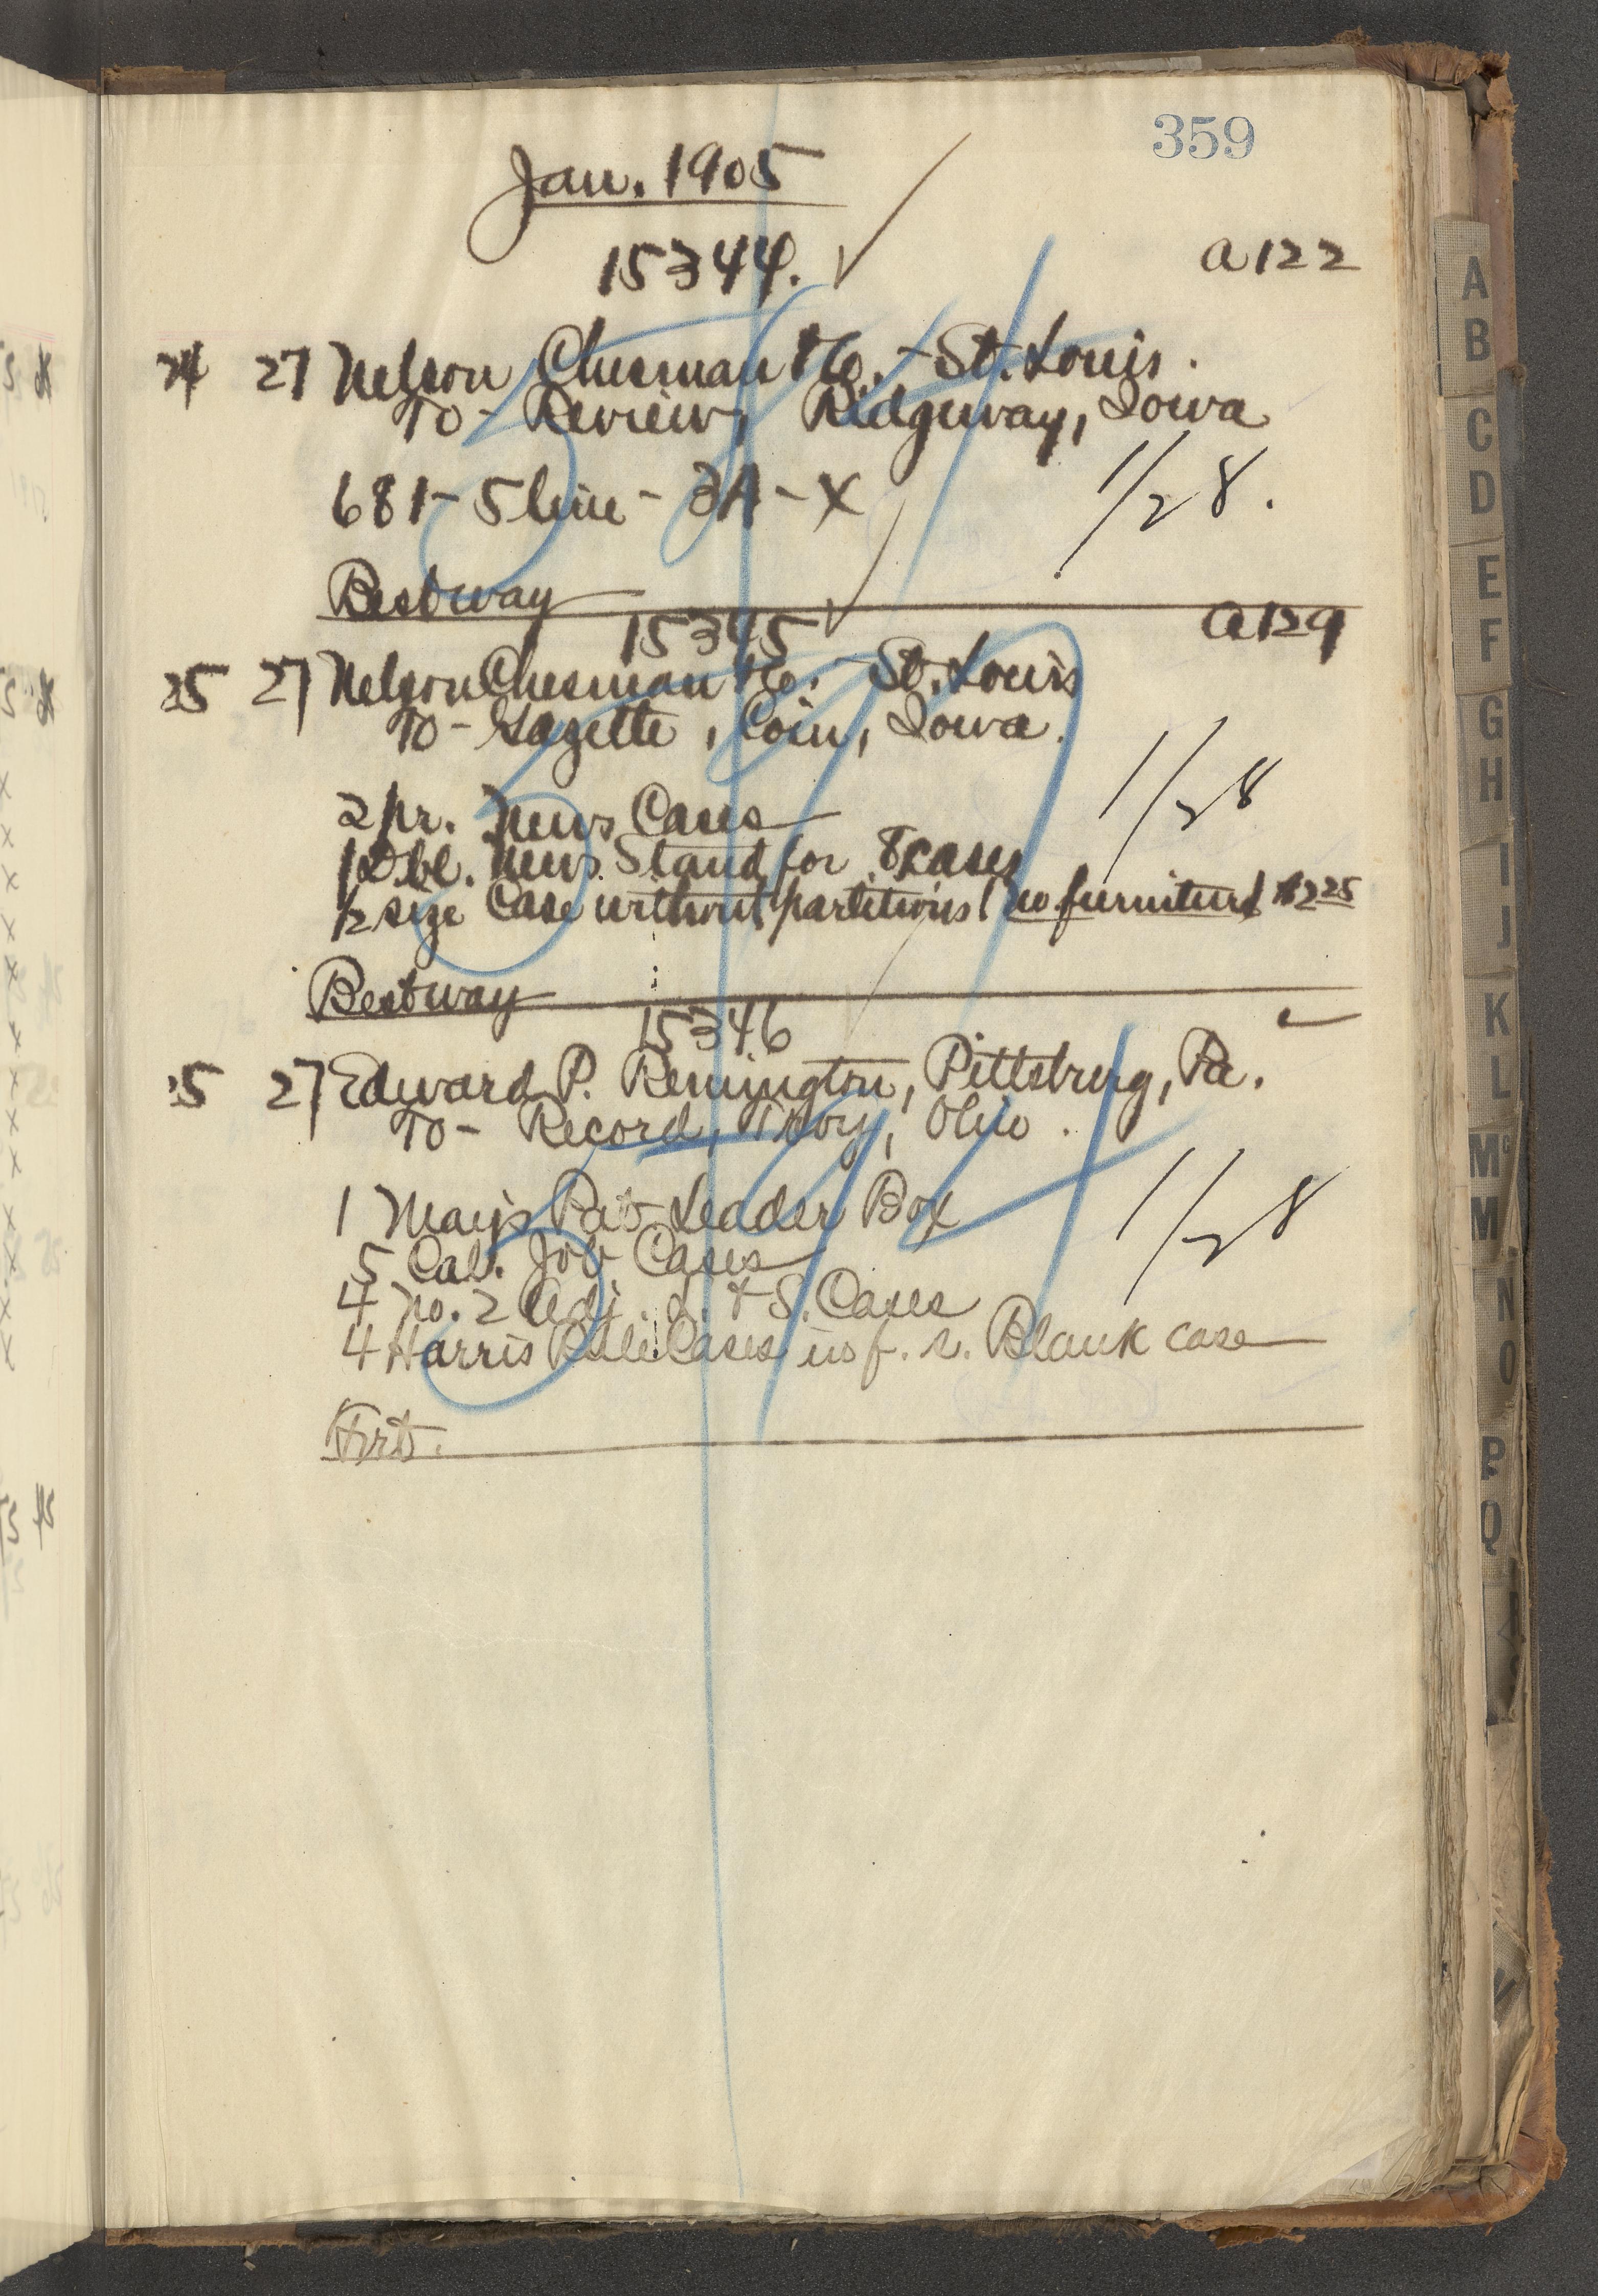 359
Jan. 1905
15344. a122
24 27 Nelson Chesman & Co. - St. Louis.
To - Review, Ridgeway, Iowa
681 - 5 line - 3A - X 1/28.
Bestway
15345 a129
25 27 Nelson Chesman & Co. - St. Louis
To - Gazette, Coin, Iowa.
2 pr. News Cases 1/28
1 Dbl. News Stand for 8 cases
1/2 size Case without partitions (no furniture) $2.25
Bestway
15346
25 27 Edward P. Remington, Pittsburg, Pa.
To - Record, Troy, Ohio.
1 May's Pat. Leader Box 1/28
5 Cal. Job Cases
4 no. 2 Adj. L. & S. Cases
4 Harris Rule Cases Blank case
Frt.
A
B
C
D
E
F
G
H
I
J
K
L
Mc
M
N
O
P
Q